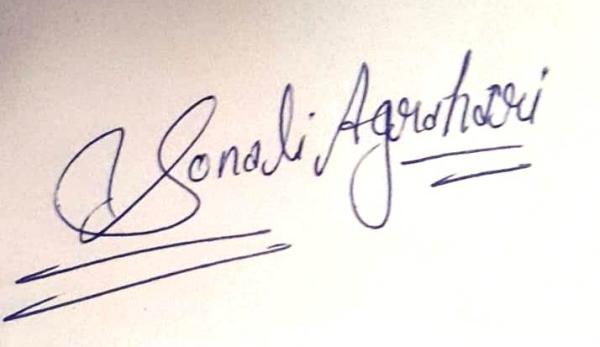 Sonali Agrahari